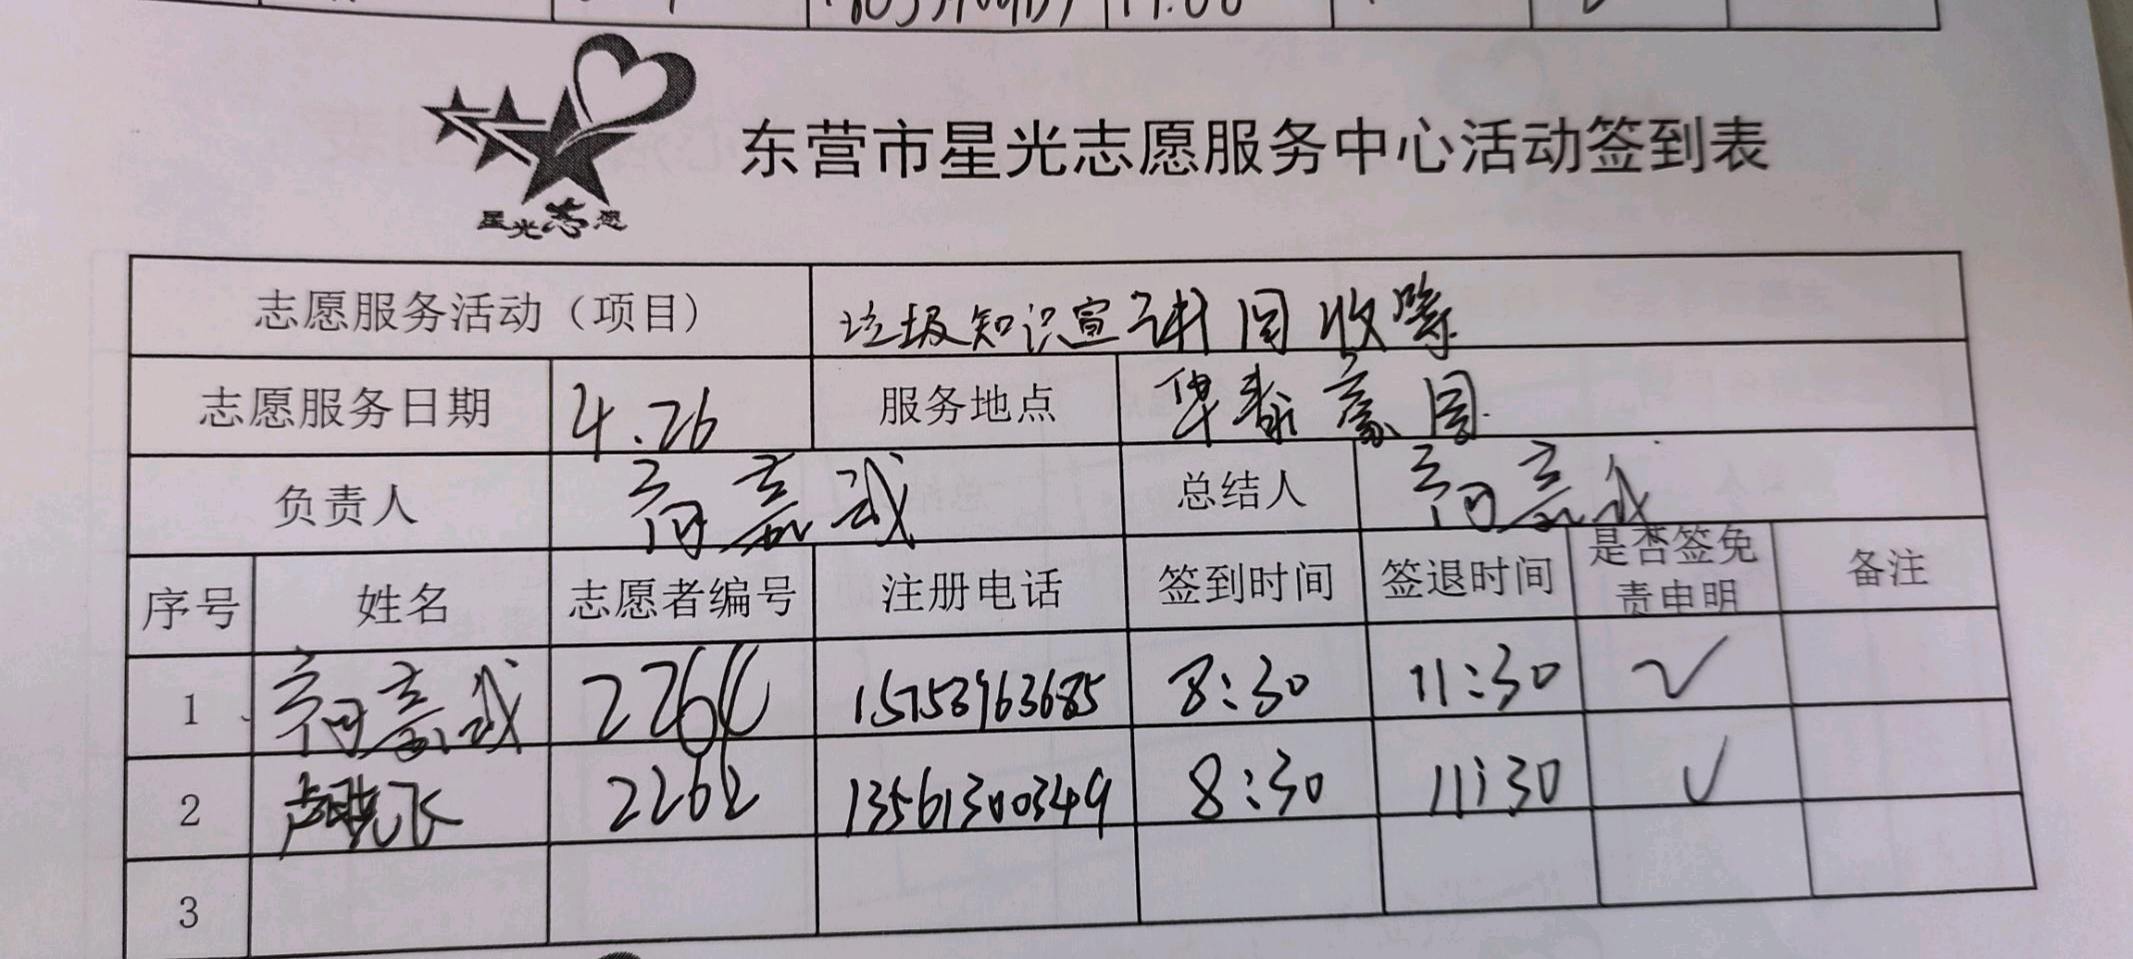 星光志愿
东营市星光志愿服务中心活动签到表
志愿服务活动（项目） 垃圾知识宣讲回收等
志愿服务日期 4.26 服务地点
负责人 高嘉诚 总结人 高嘉诚
序号 姓名 志愿者编号 注册电话 签到时间 签退时间 是否签免责申明 备注
1 高嘉诚 15753963685 8:30 11:30 ✓
2 2262 13561300349 8:30 11:30 ✓
3